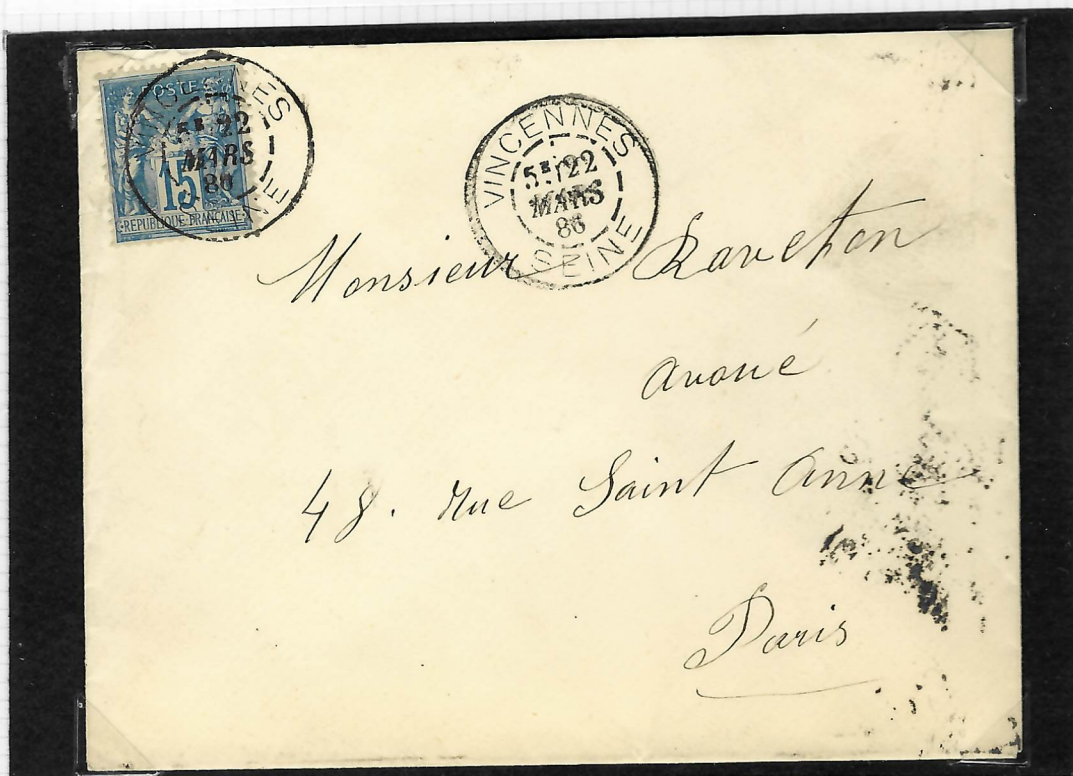 POSTES
15
REPUBLIQUE FRANÇAISE
VINCENNES
5E 22
MARS
86
SEINE
VINCENNES
5E 22
MARS
86
SEINE
Monsieur Raveton
avoué
48. rue Saint Anne
Paris